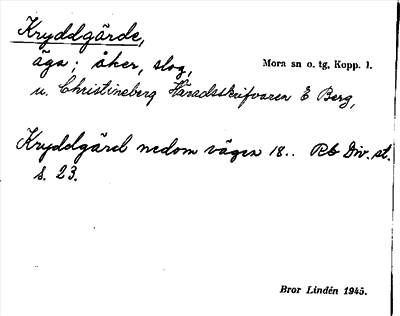 Kryddgärde,
äga; åker, slog, Mora sn o. tg, Kopp. l.
u. Christineberg Häradsskrifvaren E Berg,
Kryddgärd nedom vägen 18.. Rb Div. st.
s. 23.
Bror Lindén 1945.